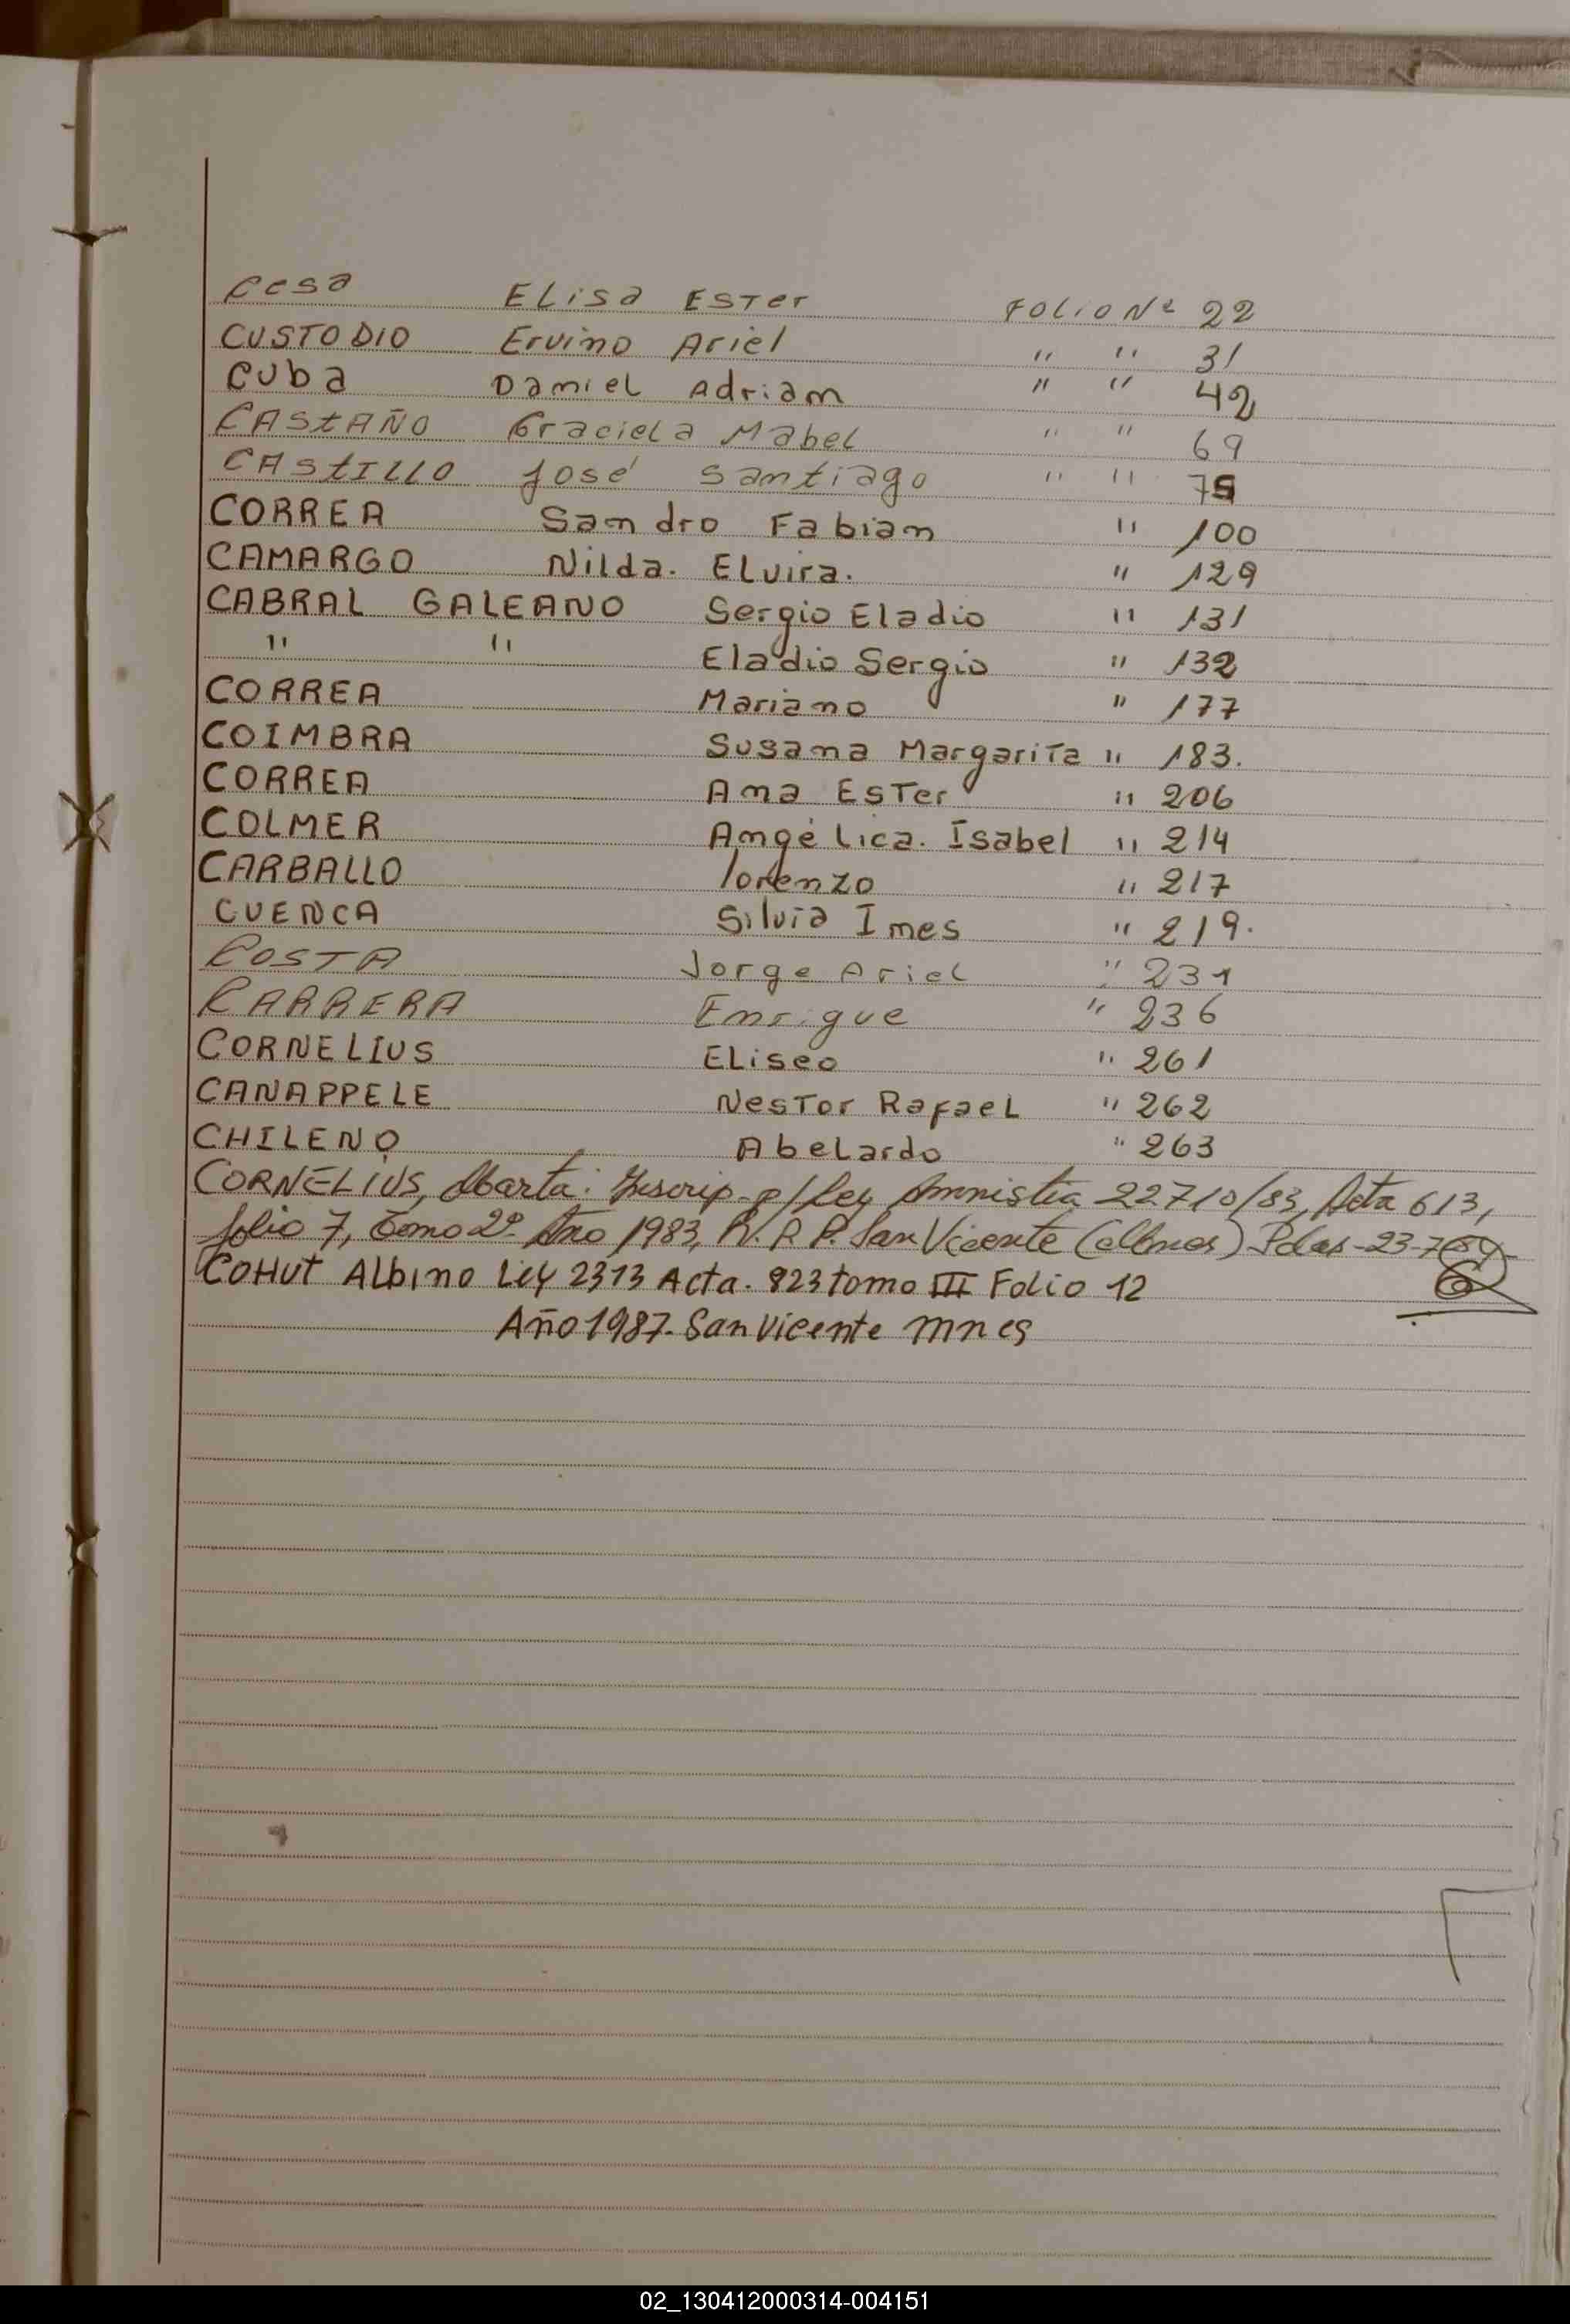 Cesa Elisa Ester Folio Nº 22
CUSTODIO Ervino Ariel " " 31
Cuba Daniel Adrian " " 42
CAStAÑO Graciela Mabel " " 69
CAStILLO José Santiago " " 75
CORREA Sandro Fabian " 100
CAMARGO Nilda. Elvira. " 129
CABRAL GALEANO Sergio Eladio " 131
" " Eladio Sergio " 132
CORREA Mariano " 177
COIMBRA Susana Margarita " 183.
CORREA Ana Ester " 206
COLMER Angélica. Isabel " 214
CARBALLO lorenzo " 217
CUENCA Silvia Ines " 219.
COSTA Jorge Ariel " 231
CARRERA Enrique " 236
CORNELIUS Eliseo " 261
CANAPPELE Nestor Rafael " 262
CHILENO Abelardo " 263
CORNELIUS, Marta: Inscrip. p/ Ley Amnistia 22710/83, Acta 613,
folio 7, Tomo 2º Año 1983, R.P.P. San Vicente (Mnes) Pdas-23-7-
COHUt Albino Ley 2313 Acta. 823 tomo III Folio 12
Año 1987. San Vicente mnes
02_130412000314-004151